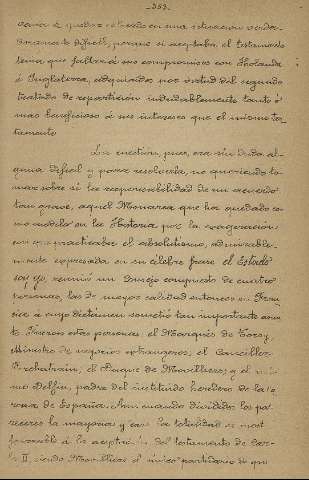 -353-
verdaderamente difícil, porque si aceptaba el testamento
tenía que faltar á sus compromisos con Holanda
é Inglaterra, adquiridos por virtud del segundo
tratado de repartición indudablemente tanto ó
mas beneficioso á sus intereses que el mismo tes-
tamento
La cuestión, pues, era sin duda al-
guna difícil y para resolverla, no queriendo to-
mar sobre sí la responsabilidad de un acuerdo
tan grave, aquel Monarca que ha quedado co-
mo modelo en la Historia por la exageración
con que practicaba el absolutismo, admirable-
mente expresada en su célebre frase el Estado
soy yo, reunió un Consejo compuesto de cuatro
personas, las de mayor calidad entonces en Fran-
cia á cuyo dictamen sometió tan importante asun-
to Fueron estas personas, el Marqués de Torcy,
Ministro de negocios extrangeros, el Canciller
Pontchartrain, el Duque de Beauvilliers, y el mis-
mo Delfin, padre del instituido heredero de la co-
rona de España. Aun cuando divididos los pa-
receres la mayoria y casi la totalidad se mostró
favorable á la aceptación del testamento de Car-
los II siendo Beauvilliers el único partidario de que